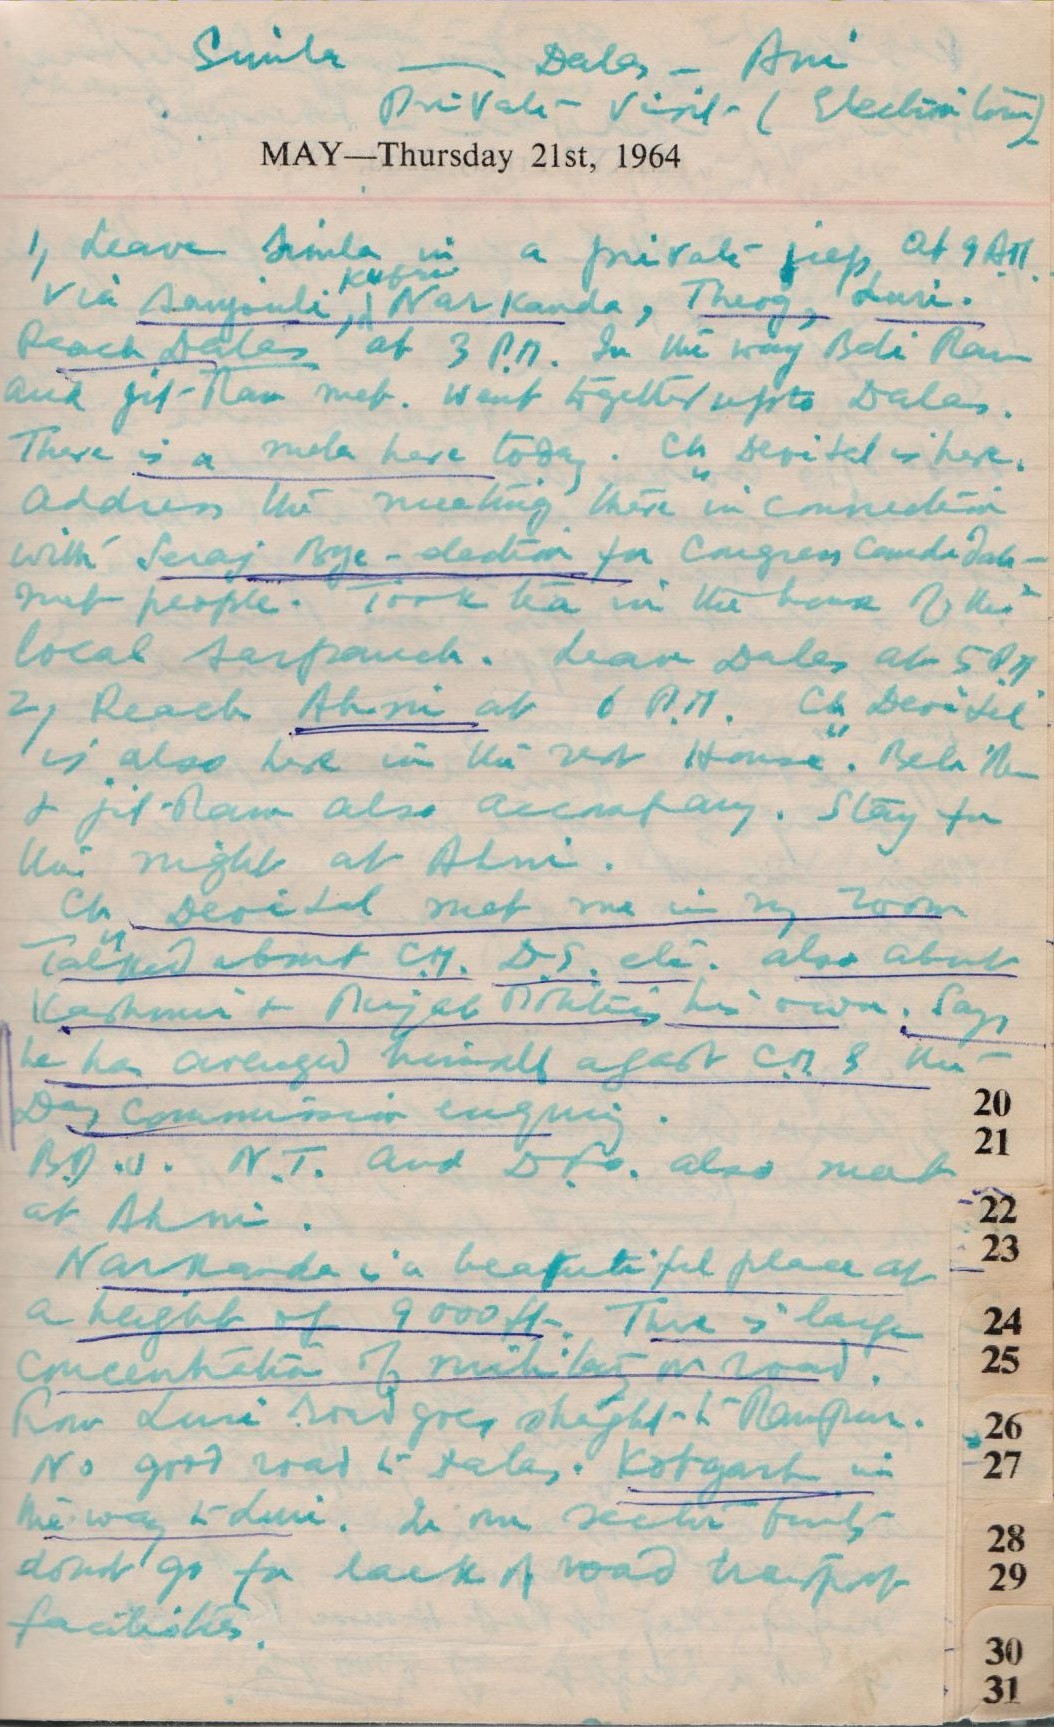 Simla — Dalas - Ani
Private visit - ( Election tour )
MAY—Thursday 21st, 1964
1, Leave Simla in a private jeep at 9 A.M.
Kufri
via Sanjouli, Narkanda, Theog, Luri.
Reach Dalas at 3 P.M. In the way Beli Ram
and Jit Ram met. Went together upto Dalas.
There is a mela here today. Ch Devi Lal is here.
Address the meeting there in connection
with Seraj Bye-election for Congress Candidate
met people. Took tea in the house of the
local Sarpanch. Leave Dalas at 5 P.M
2, Reach Ahni at 6 P.M. Ch Devi Lal
is also here in the rest House. Beli Ram
& Jit Ram also accompany. Stay for
the night at Ahni.
Ch Devi Lal met me in my room
Talked about C.M. D.S. etc. also about
Kashmir & Punjab Politics his own. Says
he has avenged himself against C.M. & the
Das Commission enquiry.
B.D.O. N.T. and D.F.O. also met
at Ahni.
Narkanda is a beautiful place at
a height of 9000 ft. There is large
concentration of military on road.
From Luri road goes straight to Rampur.
No good road to Dalas. Kotgarh in
the way to Luri. In our sector fruits
donot go for lack of road transport
facilities.
20
21
22
23
24
25
26
27
28
29
30
31